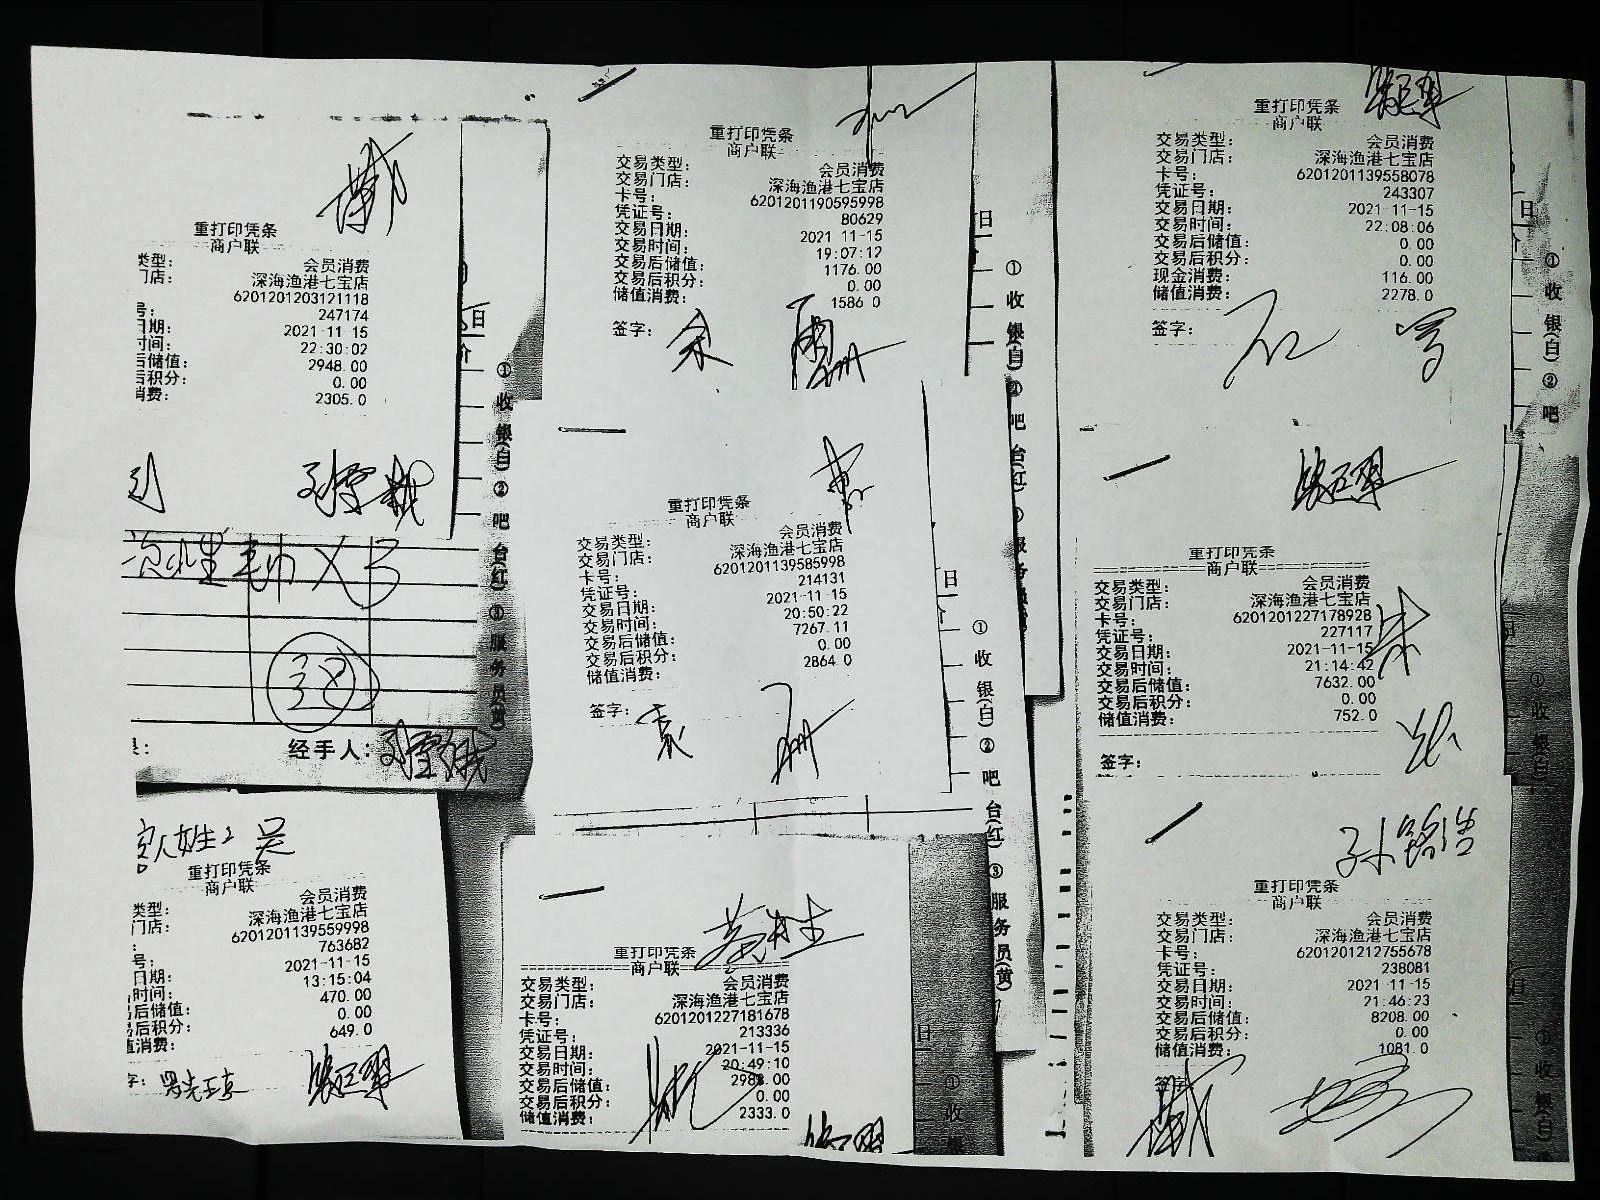 重打印凭条
商户联
类型：
会员消费
门店：
深海渔港七宝店
6201201203121118
号：
247174
日期：
2021-11-15
时间：
22:30:02
后储值：
2948.00
后积分：
0.00
消费：
2305.0
毛巾 X3
38
经手人：
重打印凭条
商户联
交易类型：
会员消费
交易门店：
深海渔港七宝店
卡号：
6201201190595998
凭证号：
80629
交易日期：
2021-11-15
交易时间：
19:07:12
交易后储值：
1176.00
交易后积分：
0.00
储值消费：
1586.0
签字：
余
重打印凭条
商户联
交易类型：
会员消费
交易门店：
深海渔港七宝店
卡号：
6201201139558078
凭证号：
243307
交易日期：
2021-11-15
交易时间：
22:08:06
交易后储值：
0.00
交易后积分：
0.00
现金消费：
116.00
储值消费：
2278.0
签字：
重打印凭条
商户联
交易类型：
会员消费
交易门店：
深海渔港七宝店
卡号：
6201201139585998
凭证号：
214131
交易日期：
2021-11-15
交易时间：
20:50:22
交易后储值：
7267.11
交易后积分：
0.00
储值消费：
2864.0
签字：
袁
重打印凭条
商户联
交易类型：
会员消费
交易门店：
深海渔港七宝店
卡号：
6201201227178928
凭证号：
227117
交易日期：
2021-11-15
交易时间：
21:14:42
交易后储值：
7632.00
交易后积分：
0.00
储值消费：
752.0
签字：
朱
客人姓：吴
重打印凭条
商户联
类型：
会员消费
门店：
深海渔港七宝店
：
6201201139559998
号：
763682
日期：
2021-11-15
时间：
13:15:04
后储值：
470.00
后积分：
0.00
值消费：
649.0
字：
重打印凭条
商户联
交易类型：
会员消费
交易门店：
深海渔港七宝店
卡号：
6201201227181678
凭证号：
213336
交易日期：
2021-11-15
交易时间：
20:49:10
交易后储值：
2988.00
交易后积分：
0.00
储值消费：
2333.0
孙铭浩
重打印凭条
商户联
交易类型：
会员消费
交易门店：
深海渔港七宝店
卡号：
6201201212755678
凭证号：
238081
交易日期：
2021-11-15
交易时间：
21:46:23
交易后储值：
8208.00
交易后积分：
0.00
储值消费：
1081.0
签字
①收银(白)②吧台(红)③服务员(黄)
①收银(白)②吧台(红)
①收银(白)②吧台(红)③服务员(黄)
①收银(白)②吧
①收银(白)
①收银
①收银(白)